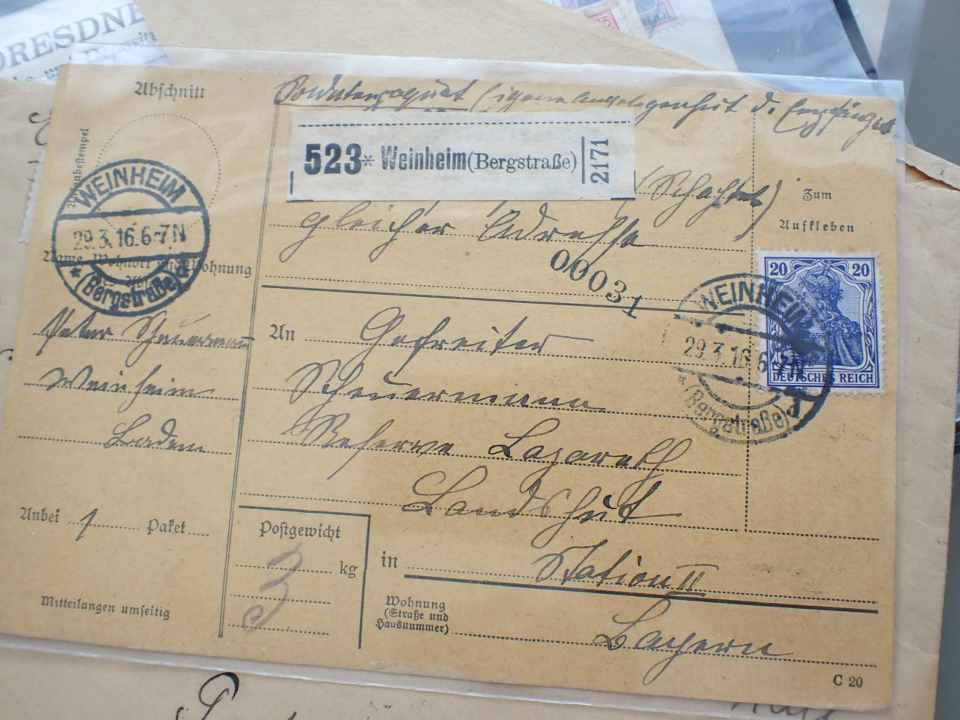 DRESDNE
Abschnitt
Soldatenpaquet Eigene Angelegenheit d. Empfängers
523* Weinheim (Bergstraße) 2171
(Schachtel)
gleicher Adresse
Zum
Aufkleben
00031
WEINHEIM
29.3.16.6-7N
(Bergstraße)
Name, Wohnort und Wohnung
Peter Scheuermann
Weinheim
Baden
An Gefreiter
Scheuermann
Reserve Lazareth
Landshut
in Station II
Wohnung
(Straße und
Hausnummer)
Bayern
WEINHEIM
29.3.16.6-7N
(Bergstraße)
20 20
DEUTSCHES REICH
Anbei 1 Paket
Postgewicht
3 kg
Mitteilungen umseitig
C 20